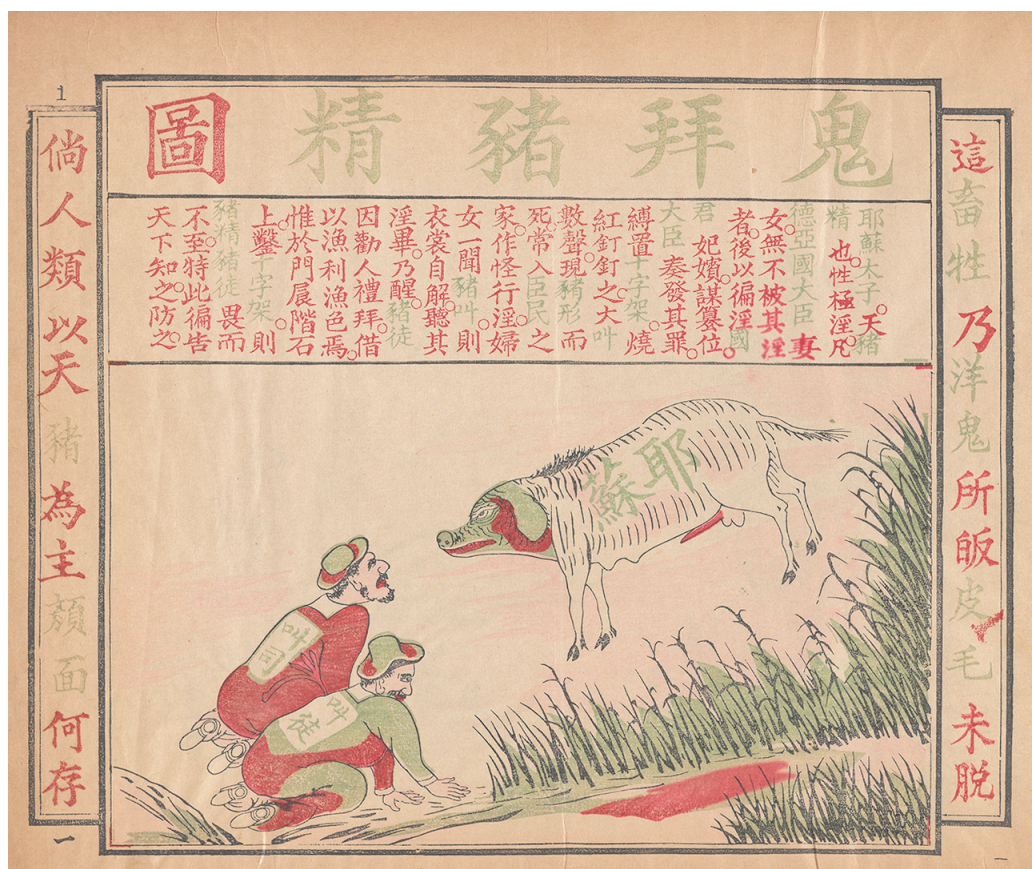 鬼拜豬精圖
這畜牲乃洋鬼所皈皮毛未脫
耶蘇太子。天豬
精也。性極淫。凡
德亞國大臣妻
女。無不被其淫
者。後以徧淫國
君妃嬪。謀篡位。
大臣奏發其罪。
縛置十字架。燒
紅釘釘之。大叫
數聲。現豬形而
死。常入臣民之
家。作怪行淫。婦
女一聞豬叫。則
衣裳自解。聽其
淫畢。乃醒。豬徒
因勸人禮拜。借
以漁利漁色焉。
惟於門扆階石
上。鑿十字架。則
豬精豬徒畏而
不至。特此徧告
天下。知之防之。
耶蘇
叫司
叫徒
1
倘人類以天豬為主顏面何存
一
一